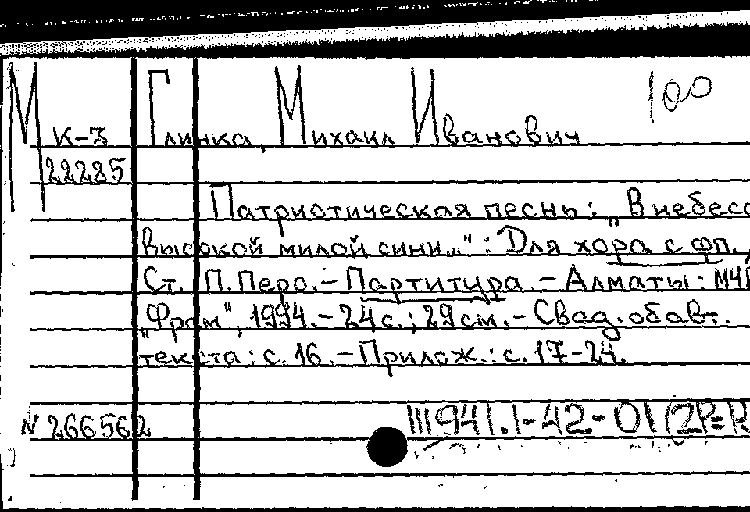 100
М К-3 Глинка, Михаил Иванович
22285
Патриотическая песнь: „В небесс
высокой милой сини...": Для хора с фп.
Ст. П. Перо. - Партитура. - Алматы: МЧП
„Фрам", 1994. - 24 с.; 29 см. - Свад. об авт.
текста: с. 16. - Прилож.: с. 17-24.
N 266562
Ш941.1-42-01(2Р=Р